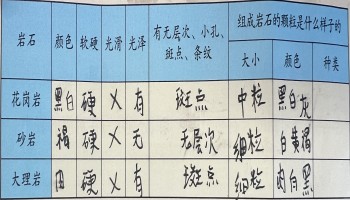 岩石 颜色 软硬 光滑 光泽 有无层次、小孔、斑点、条纹 组成岩石的颗粒是什么样子的
大小 颜色 种类
花岗岩 黑白 硬 X 有 斑点 中粒 黑白灰
砂岩 褐 硬 X 无 无层次 细粒 白黄褐
大理岩 硬 X 有 斑点 细粒 肉白黑